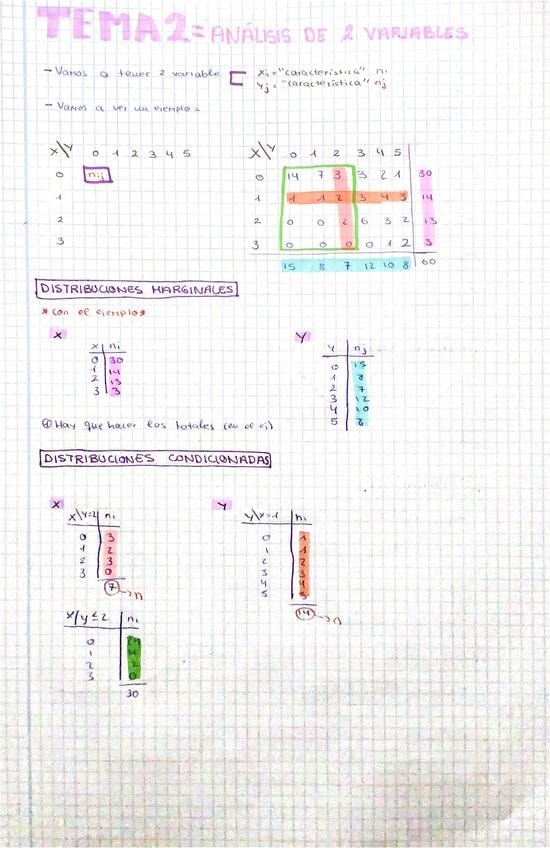 TEMA 2 = ANÁLISIS DE 2 VARIABLES
- Vamos a tener 2 variable [ Xi = "característica" ni
Yj = "característica" nj
- Vamos a ver un ejemplo =
X\Y 0 1 2 3 4 5
0 nij
1
2
3
X\Y 0 1 2 3 4 5
0 14 7 3 3 2 1 30
1 1 1 2 3 4 3 14
2 0 0 2 6 3 2 13
3 0 0 0 0 1 2 3
15 8 7 12 10 8 60
DISTRIBUCIONES MARGINALES
* con el ejemplo *
X
X ni
0 30
1 14
2 13
3 3
Y
Y nj
0 15
1 8
2 7
3 12
4 10
5 8
Hay que hacer los totales (en el ej)
DISTRIBUCIONES CONDICIONADAS
X
X\Y=2 ni
0 3
1 2
2 3
3 0
7 → n
Y
Y\X=1 ni
0 1
1 1
2 2
3 3
4 4
5 3
14 → n
X/Y ≤ 2 ni
0 24
1 4
2 2
3 0
30